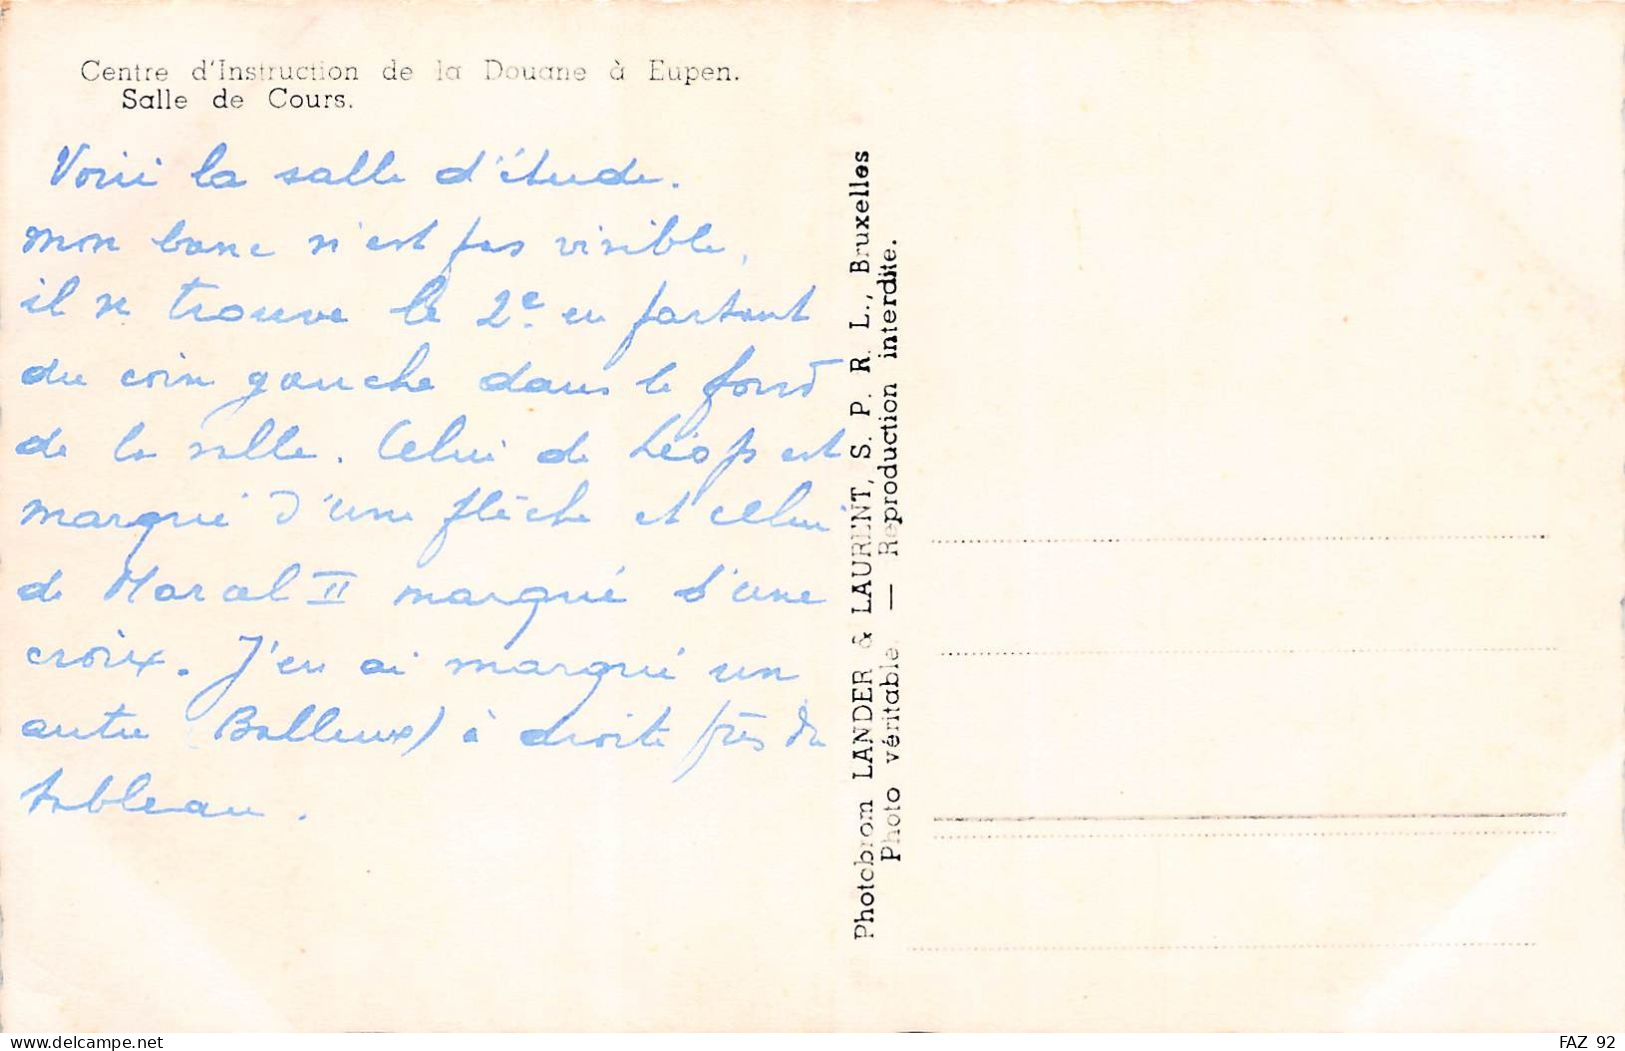 Centre d'Instruction de la Douane à Eupen.
Salle de Cours.
Voici la salle d'étude.
Mon banc n'est pas visible,
il se trouve le 2e en partant
du coin gauche dans le fond
de la salle. Celui de Léop est
marqué d'une flèche et celui
de Marcel II marqué d'une
croix. J'en ai marqué un
autre (Balleux) à droite près du
tableau.
Photobrom LANDER & LAURENT, S. P. R. L., Bruxelles
Photo véritable — Reproduction interdite.
delcampe.net
FAZ 92